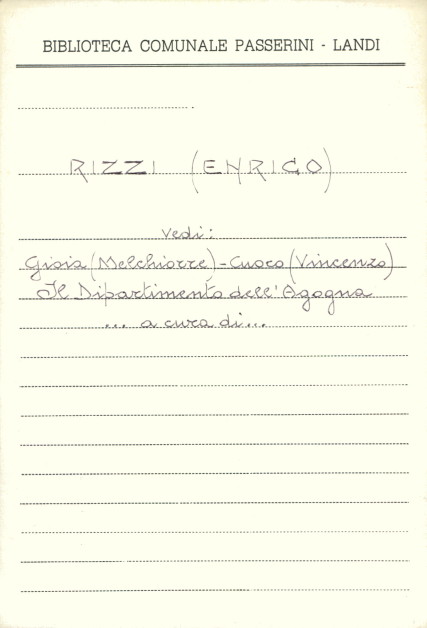 BIBLIOTECA COMUNALE PASSERINI - LANDI
RIZZI (ENRICO)
Vedi:
Gioia (Melchiorre) - Cuoco (Vincenzo)
Il Dipartimento dell'Agogna
... a cura di...